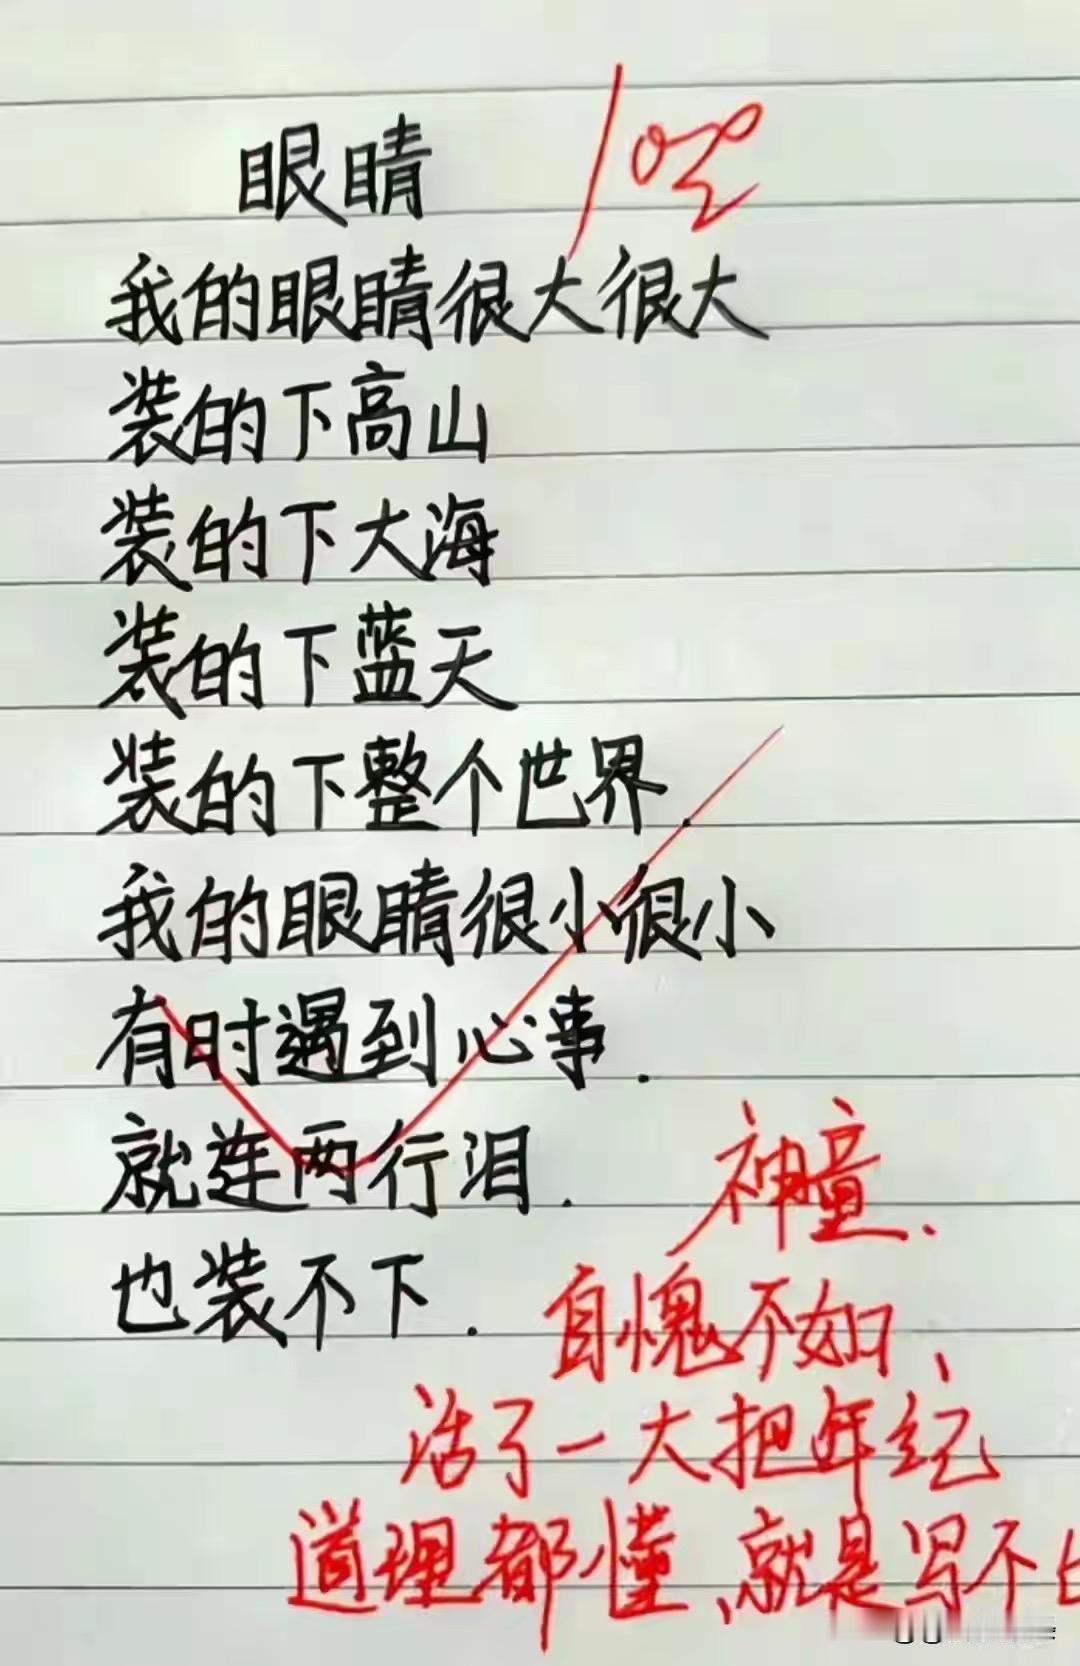 眼睛
100
我的眼睛很大很大
装的下高山
装的下大海
装的下蓝天
装的下整个世界.
我的眼睛很小很小
有时遇到心事.
就连两行泪.
也装不下.
神童.
自愧不如、
活了一大把年纪
道理都懂、就是写不